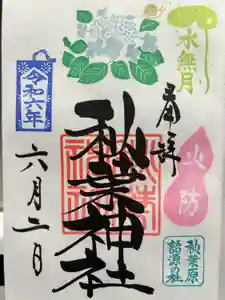 水無月
奉拝
火防
秋葉神社
秋葉原
語源の社
令和六年
六月二日